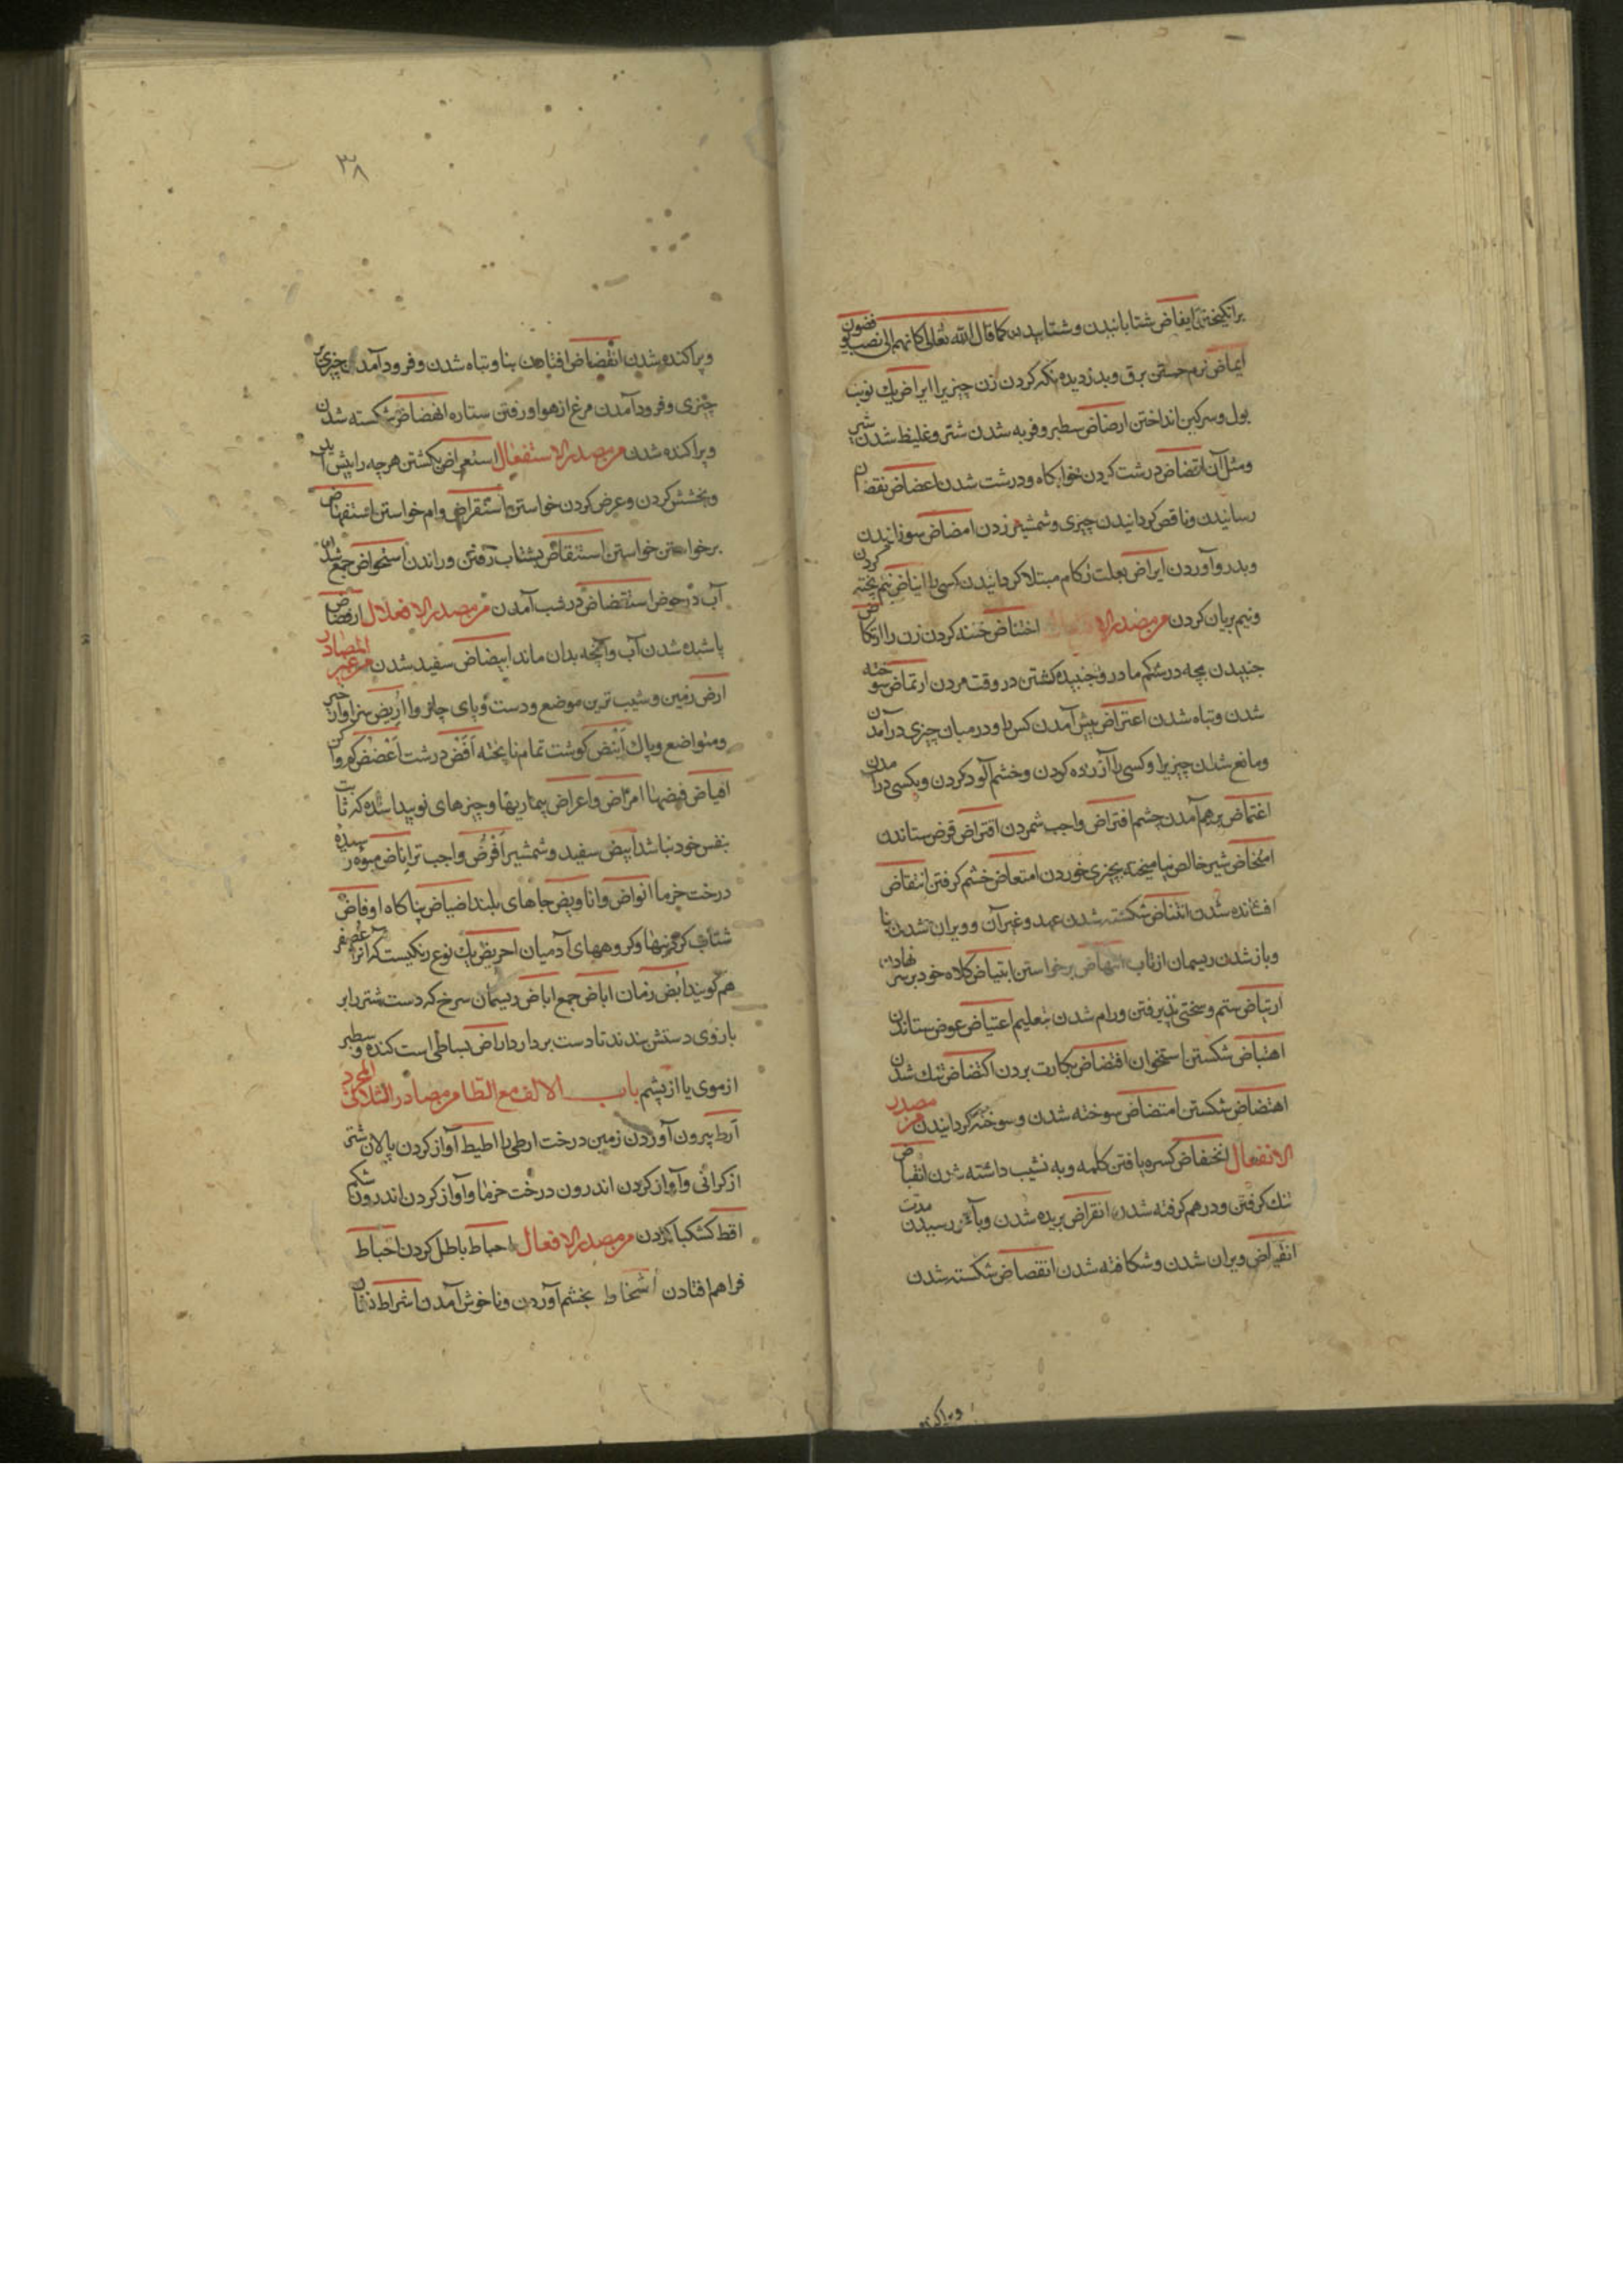 برانگیختن ایفاض شتابانیدن و شتابیدن کما قال الله تعالی کانهم الی نصب یوفضون
ایماض نرم جستن برق و بدزدیده نگه کردن زن چیزیرا ایراض یک نوبت
بول و سرکین انداختن ارضاض سطبر و فربه شدن شتر و غلیظ شدن شیر
و مثل آن اقضاض درشت کردن خوابکاه و درشت شدن
رسانیدن و ناقص کردانیدن چیزی و شمشیر زدن امضاض سوزانیدن
و بدرد آوردن ایراض بعلت زکام مبتلا کردانیدن کسی را ایناض نیم پخته کردن
و نیم بریان کردن من مصدر الا اختناض ختنه کردن زن را ارتکاض
جنبیدن بچه در شکم مادر و جنبیده کشتن در وقت مردن ارتماض سوخته
شدن و تباه شدن اعتراض پیش آمدن کس را و در میان چیزی در آمدن
و مانع شدن چیزیرا و کسی را آزرده کردن و خشم آلود کردن و بکسی در آمدن
اغتماض برهم آمدن چشم افتراض واجب شمردن اقتراض قرض ستاندن
امتخاض شیر خالص نیامیخته بچیزی خوردن امتعاض خشم کرفتن انتفاض
افشانده شدن انتقاض شکسته شدن عهد و غیر آن و ویران شدن بنا
و باز شدن ریسمان از تاب انتهاض برخواستن ابتیاض کلاه خود بر سر نهادن
ارتیاض ستم و سختی پذیرفتن و رام شدن بتعلیم اعتیاض عوض ستاندن
اهتیاض شکستن استخوان افتضاض بکارت بردن اکتضاض تنک شدن
اهتضاض شکستن امتضاض سوخته شدن و سوخته کردانیدن من مصدر
الانفعال انخفاض کسره یافتن کلمه و به نشیب داشته شدن انقباض
تنك کرفتن و در هم کرفته شدن انقراض بریده شدن و بآخر رسیدن مدت
انقیاض ویران شدن و شکافته شدن انقضاض شکسته شدن
۳۸
و پراکنده شدن انقضاض افتادن بنا و تباه شدن و فرود آمدن چیزی بر
چیزی و فرود آمدن مرغ از هوا و رفتن ستاره انفضاض شکسته شدن
و پراکنده شدن من مصدر الاستفعال استعراض بکشتن هرچه را پیش آید
و بخشش کردن و عرض کردن خواستن استقراض وام خواستن استنهاض
برخواستن خواستن استنقاض بشتاب رفتن و راندن استحواض جمع شدن
آب در حوض در شب آمدن من مصدر الافعلال ارفضاض
پاشیده شدن آب و آنچه بدان ماند ابیضاض سفید شدن من غیر المصادر
ارض زمین و شیب ترین موضع و دست و پای چاروا اریض سزاوار خیر
و متواضع و پاك انیض کوشت تمام نا پخته اقض درشت
امراض و اعراض بیماریها و چیزهای نو پیدا شده که ثابت
بنفس خود نباشد ابیض سفید و شمشیر افرض واجب تر اناض میوه رسیده
درخت خرما انواض و اناویض جاهای بلند اوفاض
شتاب و کروههای آدمیان احریض یك نوع رنکیست که آنرا عصفر
هم کویند ابض زمان اباض جمع اباض ریسمان سرخ که دست شتر را بر
بازوی دستش بندند تا دست بردارد اراض بساطی است کنده و سطبر
از موی یا از پشم باب الالف مع الطا من مصادر الثلاثی المجرد
ارط بیرون آوردن زمین درخت ارطی را اطیط آواز کردن پالان شتر
از کرانی و آواز کردن اندرون درخت خرما و آواز کردن اندرون شکم
اقط کشکبا کردن من مصدر الافعال احباط باطل کردن اخباط
فراهم افتادن اسخاط بخشم آوردن و ناخوش آمدن اشراط